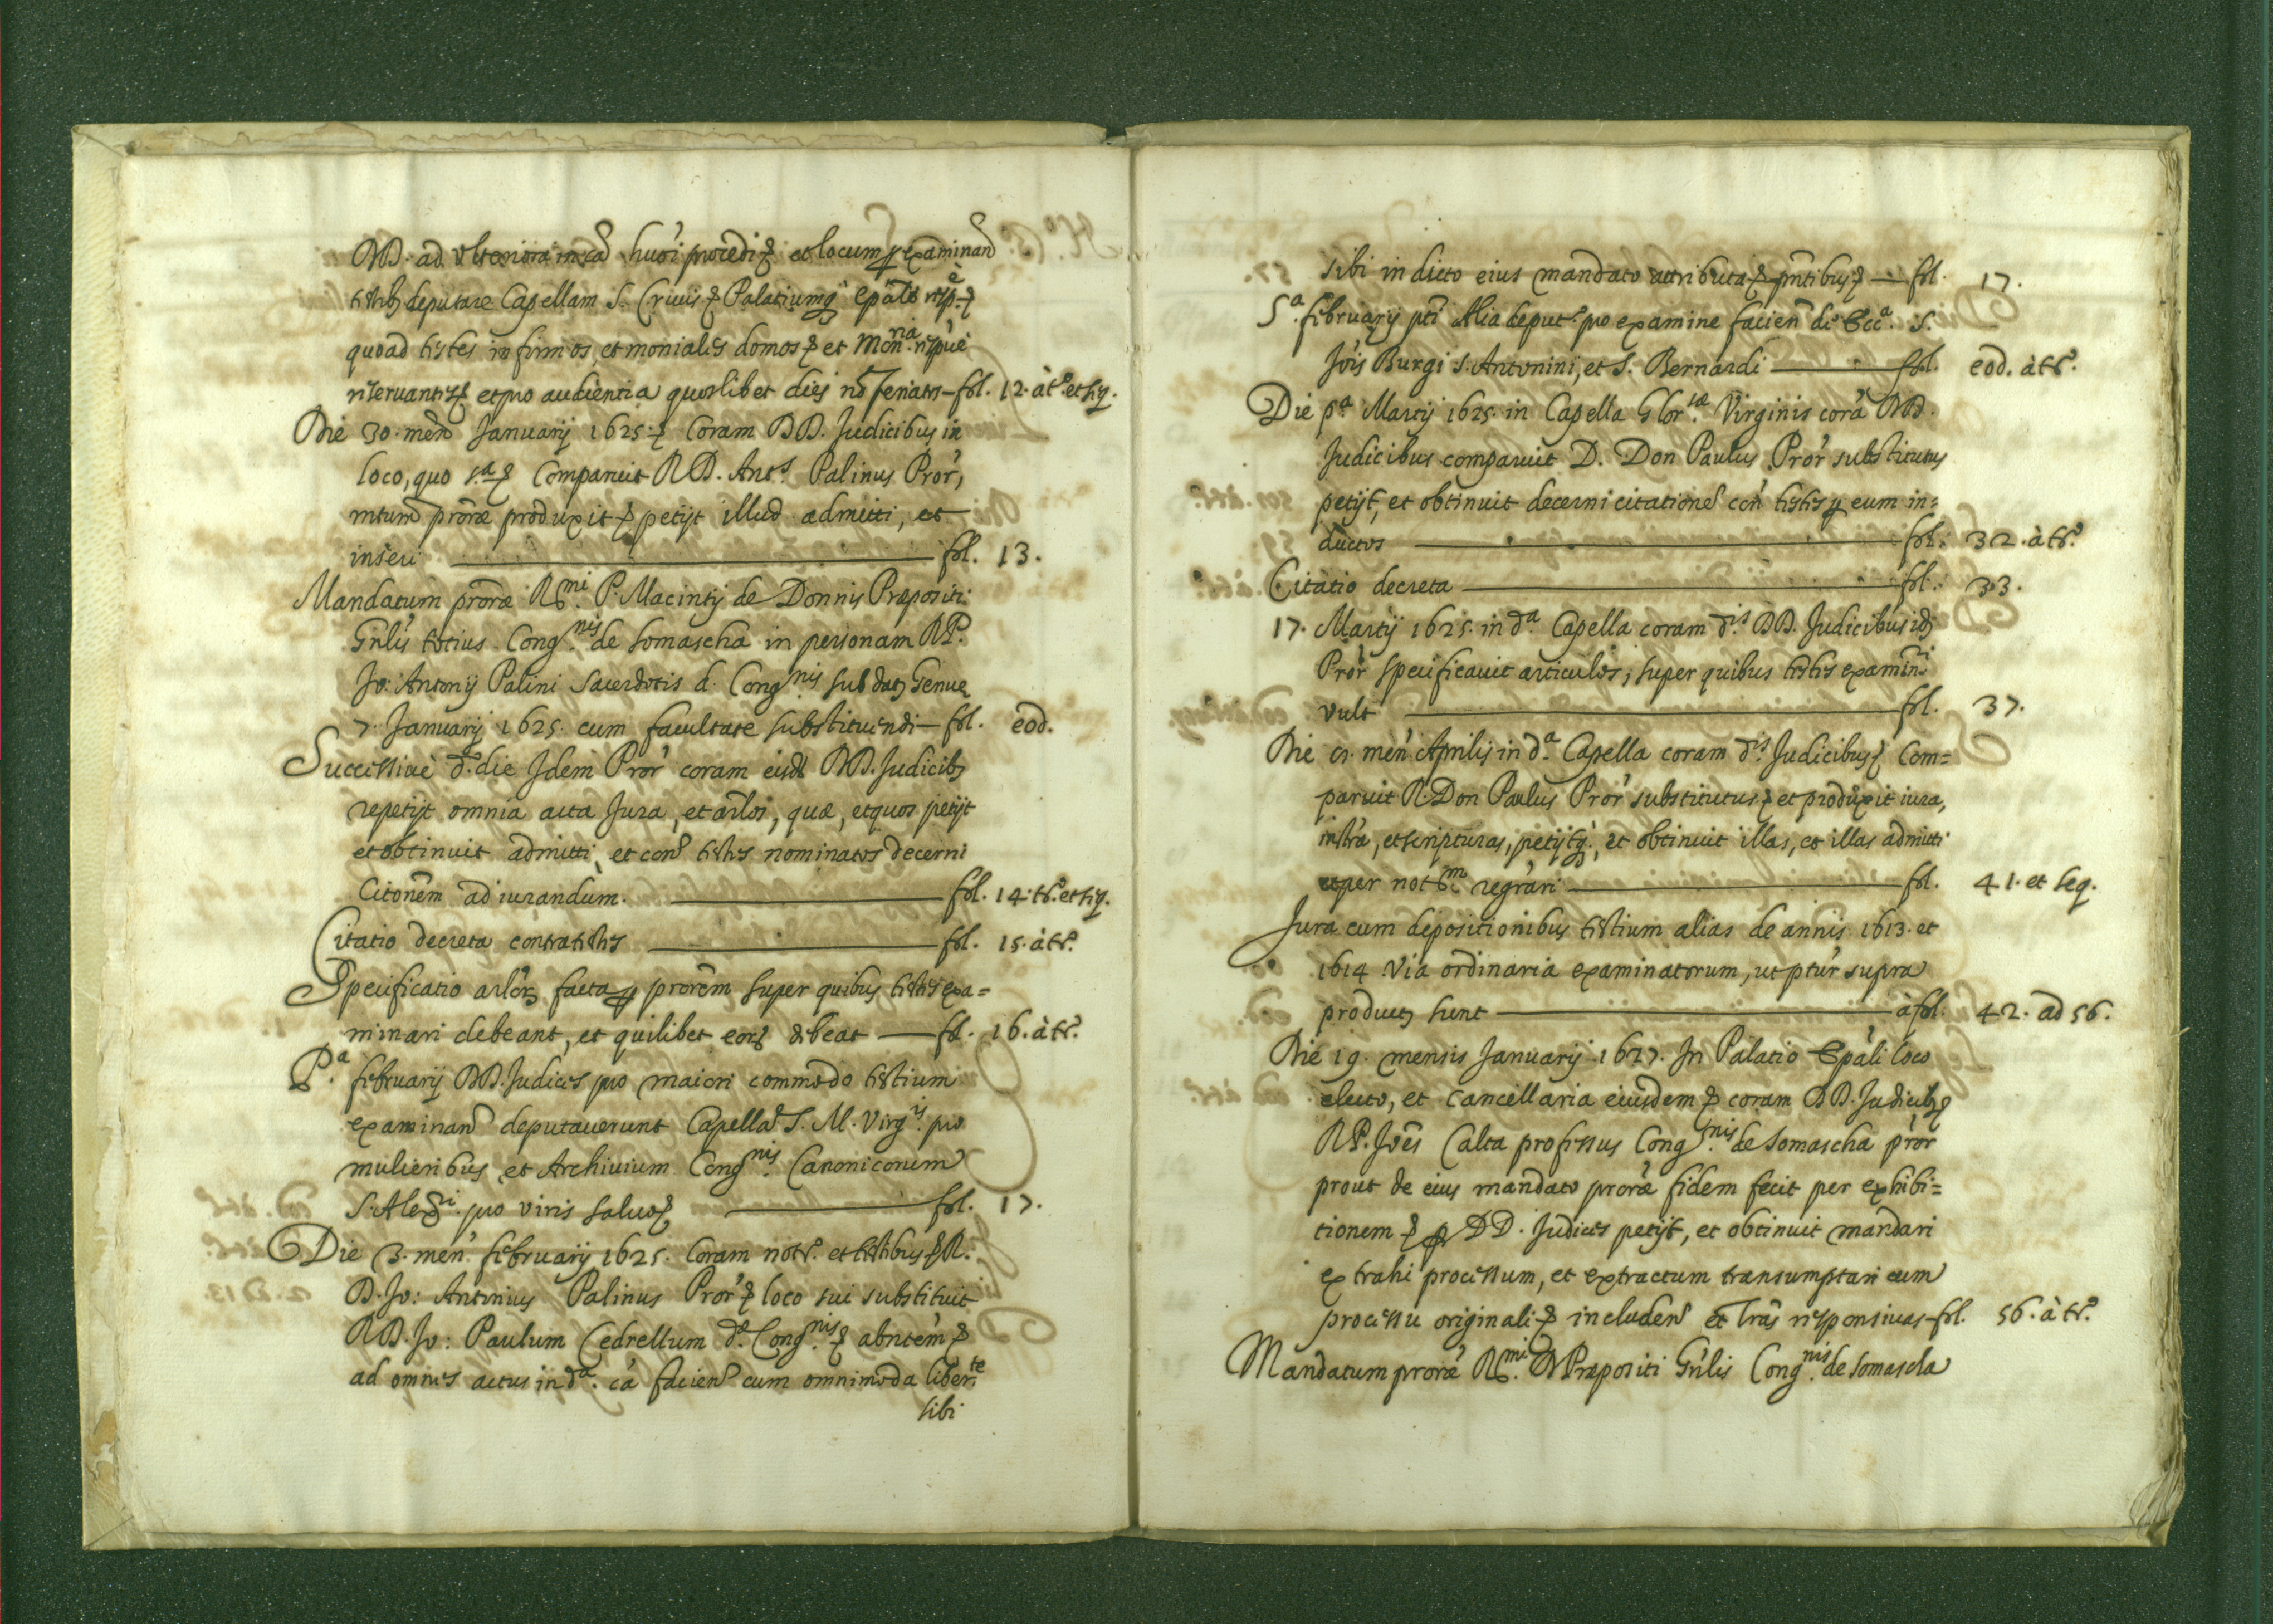 DD. ad ulteriora in ca hu̅oi procedi & et locum p examinan
testib. deputare Capellam S. Crucis & Palatiumq. Epāle resp.è &
quoad testes infirmos, et moniales domos & et Mon.ria respuè
reservantes & et pro audientia quoslibet dies nō feriatos - fol. 12. à t.o et seq.
Die 30. men̄ Januarij 1625. & Coram DD. Judicibus in
loco, quo s.a & Comparuit R.D. Ant.s Palinus Pror̄,
mtum̄ prorāe produxit & petijt illud admitti, et
inseri fol. 13.
Mandatum prorāe R.mi P. Macintij de Donnis Præpositi
Gn̄lis totius Cong.nis de Somascha in personam R.P.
Jo: Antonij Palini Sacerdotis d. Cong.nis sub dat. Genue
7. Januarij 1625. cum facultate substituendi - fol. eod.
Successivè d.o die Idem Pror̄ coram eisd. DD. Judicib.
repetijt omnia acta Jura, et arl̄os, quæ, et quos petijt
et obtinuit admitti, et con̄ testes nominatos decerni
Citon̄em ad iurandum. fol. 14. t.o et seq.
Citatio decreta contra testes fol. 15. à t.o
Specificatio arl̄or. facta p prorēm super quibus testes exa=
minari debeant, et quilibet eor. debeat - fol. 16. à t.o
P.a februarij DD. Judices pro maiori commodo testium
examinan̄ deputaverunt Capellā S. M. Virg.is pro
mulieribus, et Archivium Cong.nis Canonicorum
S. Alex.ri pro viris salvo & fol. 17.
Die 3. men̄ februarij 1625. Coram not.o et testibus & R.
D. Jo: Antonius Palinus Pror̄ & loco sui substituit
R.D. Jo: Paulum Cedrellum d.æ Cong.nis & abntēm &
ad omnes actus in d.a cā facien̄ cum omnimoda liber.te
sibi
sibi in dicto eius mandato attributa & pn̄tibus & - fol. 17.
5.a februarij pt̄i Alia deput.o pro examine facien̄ de Ecc.a S.
Jois Burgi S. Antonini, et S. Bernardi fol. eod. à t.o
Die p.a Martij 1625. in Capella Glor.sæ Virginis corā DD.
Judicibus comparuit D. Don Paulus Pror̄ substitutus
petijt, et obtinuit decerni citationē con̄ testes p eum in=
ductos fol. 32. à t.o
Citatio decreta fol. 33.
17. Martij 1625. in d.a Capella coram d.is DD. Judicibus id.
Pror̄ specificavit articulos, super quibus testes examin.ri
vult fol. 37.
Die 9. men̄ Aprilis in d.a Capella coram d.is Judicibus & Com=
paruit R. Don Paulus Pror̄ substitutus & et produxit iura,
instrā, et scripturas, petijtq., et obtinuit illas, et illas admitti
et per not.m regrāri fol. 41. et seq.
Jura cum depositionibus testium alias de annis 1613. et
1614 via ordinaria examinatorum, ut ptūr supra
product. sunt à fol. 42. ad 56.
Die 19. mensis Januarij 1627. In Palatio Epāli loco
electo, et Cancellaria eiusdem & coram DD. Judicib. &
R.P. Joēs Calta professus Cong.nis de Somascha pror̄
prout de eius mandato prorāe fidem fecit per exhibi=
tionem & p DD. Judices petijt, et obtinuit mandari
extrahi processum, et extractum transumptari cum
processu originali & includen̄ et Lrās responsivas - fol. 56. à t.o
Mandatum prorāe R.mi D. Præpositi Gn̄lis Cong.nis de Somascha